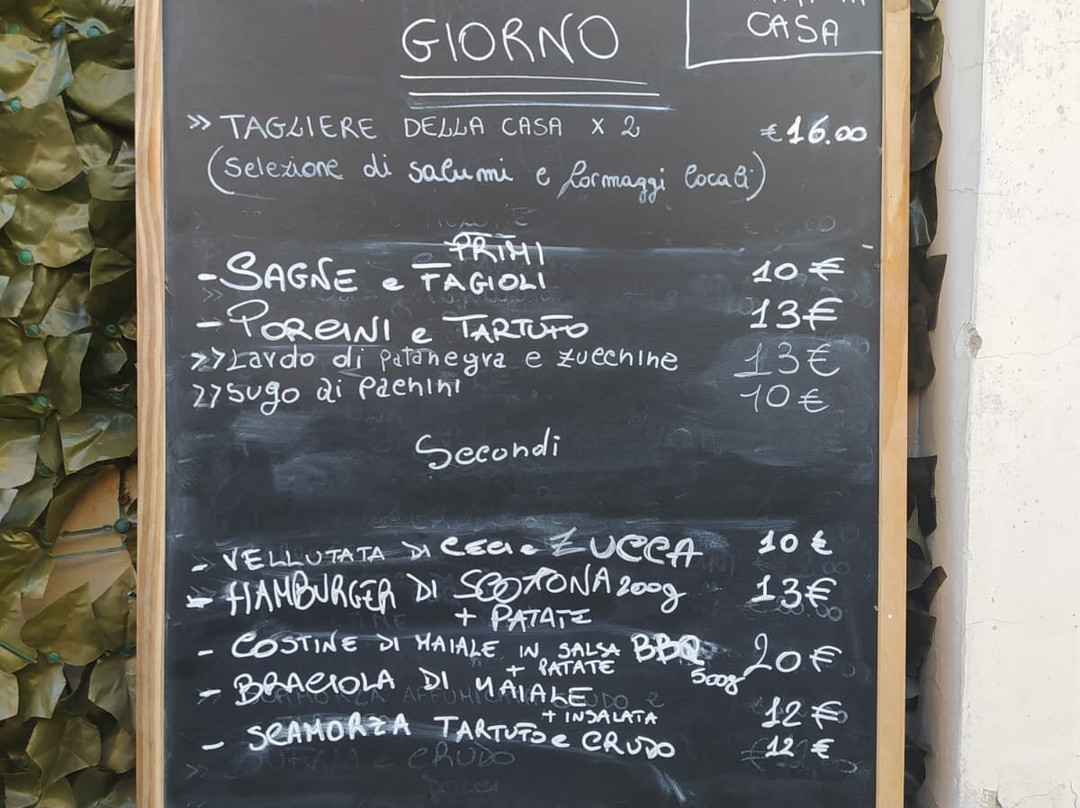 GIORNO
CASA
>> TAGLIERE DELLA CASA X 2 €16.00
(Selezione di salumi e formaggi locali)
PRIMI
- SAGNE e FAGIOLI 10 €
- PORCINI e TARTUFO 13€
>>Lardo di patanegra e zucchine 13€
>>Sugo ai pachini 10€
Secondi
- VELLUTATA DI CECI e ZUCCA 10 €
- HAMBURGER DI SCOTTONA 200g 13€
+ PATATE
- COSTINE DI MAIALE IN SALSA BBQ 500g 20€
+ PATATE
- BRACIOLA DI MAIALE 12 €
+ INSALATA
- SCAMORZA TARTUFO e CRUDO 12 €